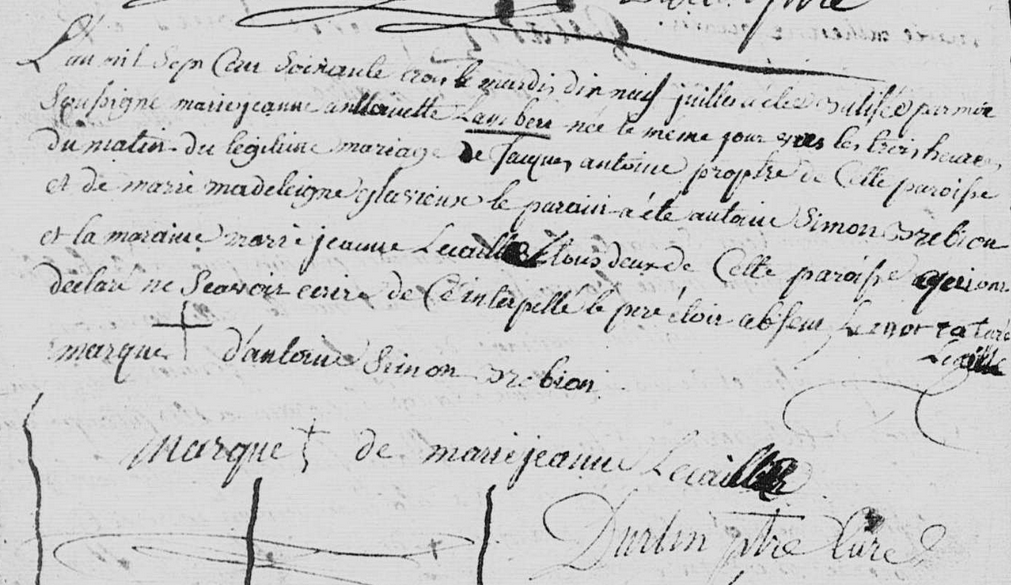 L'an mil Sept Cent Soixante trois le mardis dix neuf juillet a été Batisée par moi
Soussigné marie jeanne anthoinette Lambert née le meme jour vers les trois heures
du matin du legitime mariage de Jacques antoine proptre de Cette paroisse
et de marie madeleigne glavieux le parain a été antoine Simon Brebion
et la maraine marie jeanne Lecaille tous deux de Cette paroisse aqui ont
declaré ne Scavoir ecrire de Ce interpellé le pere étoit absent
Lecaille
marque d'antoine Simon Brebion
marque de marie jeanne Lecaille
Durlin ptre Curé